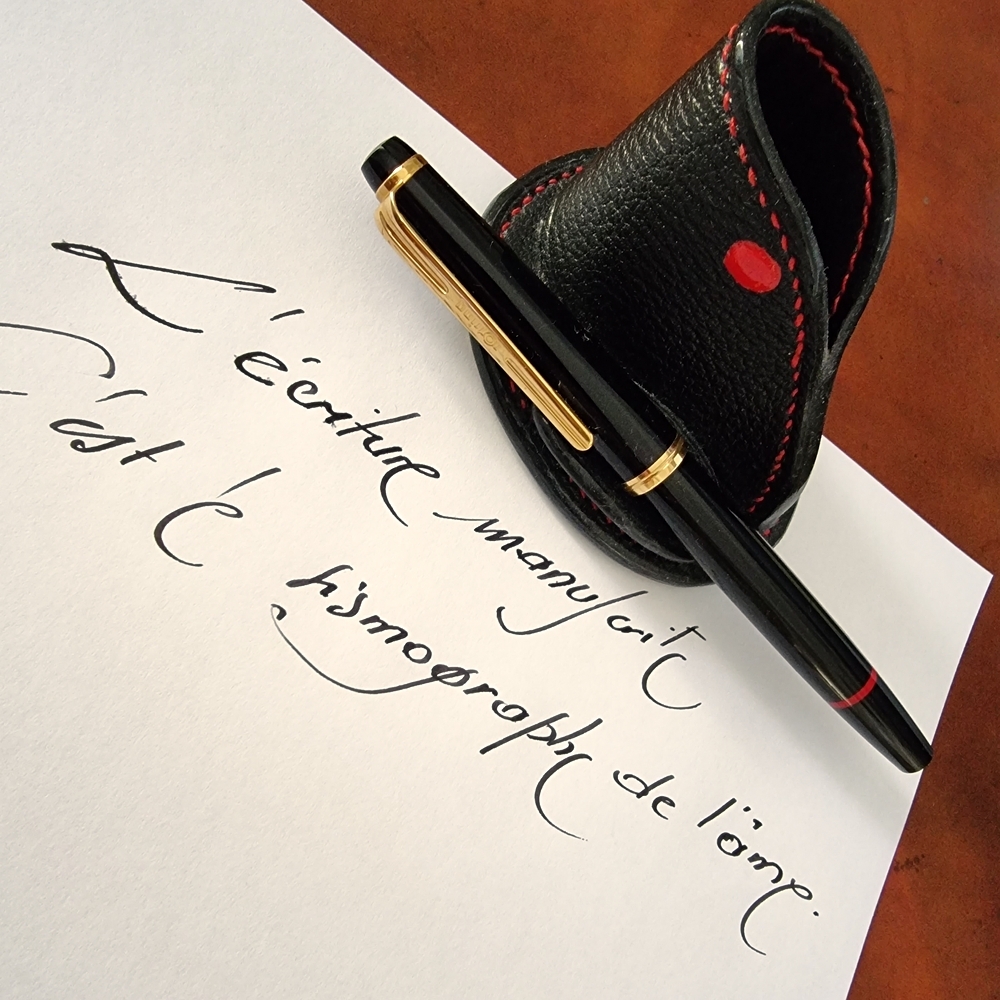 L'écriture manuscrite
C'est le sismographe de l'âme.